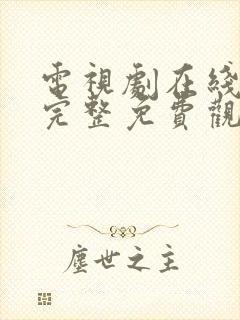 電視劇在綫
完整免費觀
塵世之主